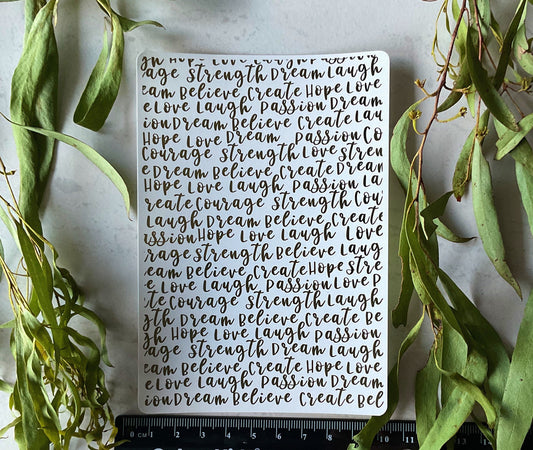 gh Hope Love Laugh Passion
age Strength Dream Laugh
eam Believe Create Hope Love
e Love Laugh Passion Dream
ion Dream Believe Create Lau
Hope Love Dream Passion Co
Courage Strength Love Stren
e Dream Believe Create Dream
Hope Love Laugh Passion La
reate Courage Strength Cou
Laugh Dream Believe Create
ission Hope Love Laugh Love
rage Strength Believe Laug
eam Believe Create Hope Stre
e Love Laugh Passion Love P
te Courage Strength Laugh
gth Dream Believe Create Be
gh Hope Love Laugh Passion
age Strength Dream Laugh
eam Believe Create Hope Love
e Love Laugh Passion Dream
ion Dream Believe Create Bel
0 CM 1 2 3 4 5 6 7 8 9 10 11 13